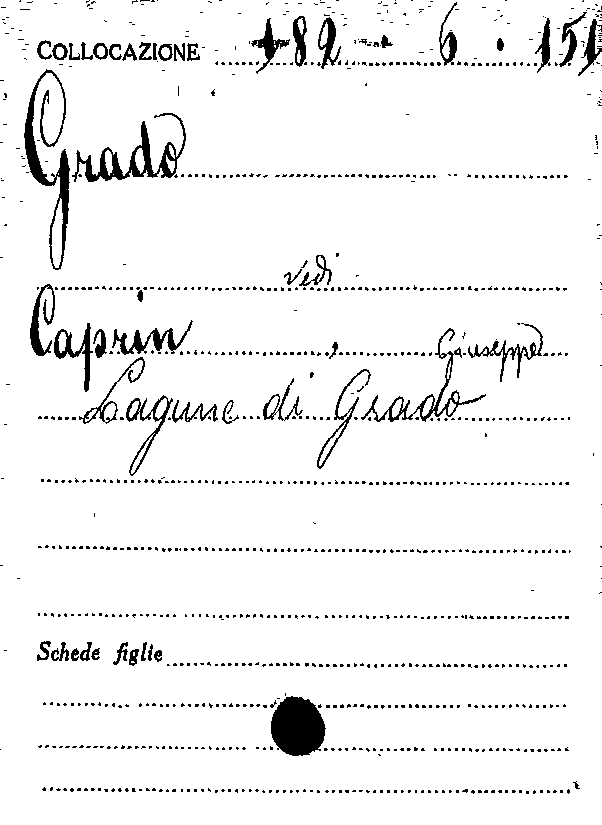 COLLOCAZIONE 182 - 6 . 151
Grado
vedi
Caprin, Giuseppe
Lagune di Grado
Schede figlie